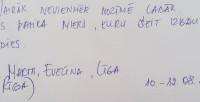 NEVIENMĒR NOZĪMĒ LABĀK
S DAIĻA MIERS, KURU ŠEIT IZBAU
DIES.
MARTA, EVELĪNA, LĪGA
RĪGA) 10.-12.08.